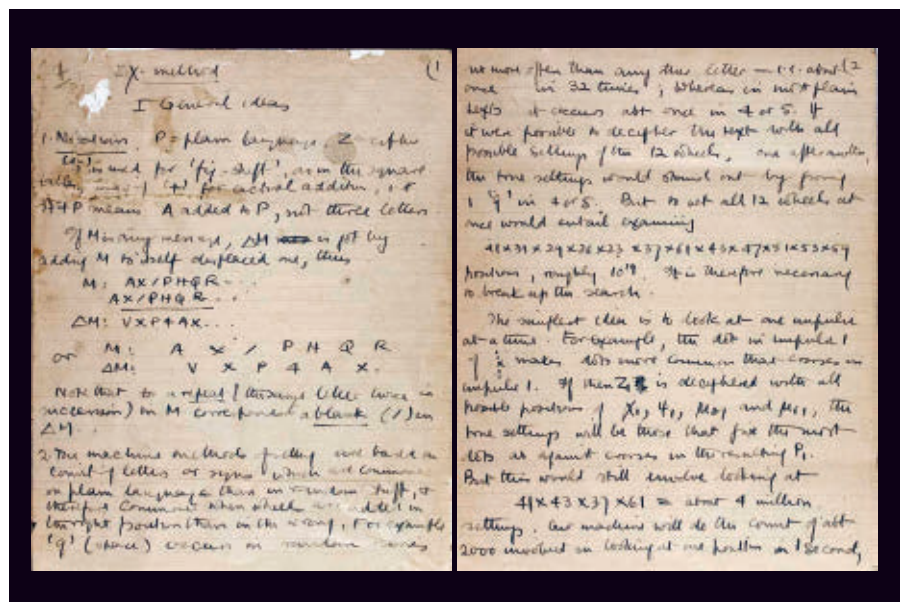 X-method (1
I General ideas
1. P = plain language, Z = cipher
is used for 'fig-shift', as in the
'+' for actual addition, i.e.
A+P means A added to P, not three letters.
If M is any message, ΔM is got by
adding M to itself displaced one, thus
M: AX/PHQR...
AX/PHQR...
ΔM: VXP4AX...
or M: A X / P H Q R
ΔM: V X P 4 A X.
Note that to a repeat (the same letter twice in
succession) in M corresponds a blank (/) in
ΔM.
2. The machine methods setting are based on
count of letters or signs which are commoner
in plain language than in random stuff, &
therefore commoner when wheels are added in
the right position than in the wrong. For example
'9' (space) occurs in random
no more often than any other letter — i.e. about (2
once in 32 times; whereas in plain
texts it occurs abt once in 4 or 5. If
it were possible to decipher the text with all
possible settings of the 12 wheels, one after another,
the true settings would stand out by giving
1 '9' in 4 or 5. But to set all 12 wheels at
once would entail examining
41×31×29×26×23×37×61×43×47×51×53×59
positions, roughly 10¹⁹. It is therefore necessary
to break up the search.
The simplest idea is to look at one impulse
at a time. For example, the dot in impulse 1
of makes dots more common than crosses in
impulse 1. If then Z is deciphered with all
possible positions of X₁, Ψ₁, μ₃₇ and μ₆₁, the
true settings will be those that give the most
dots as against crosses in the resulting P₁.
But this would still involve looking at
41×43×37×61 = about 4 million
settings. Our machine will do the count of abt
2000 involved in looking at one position in 1 second,